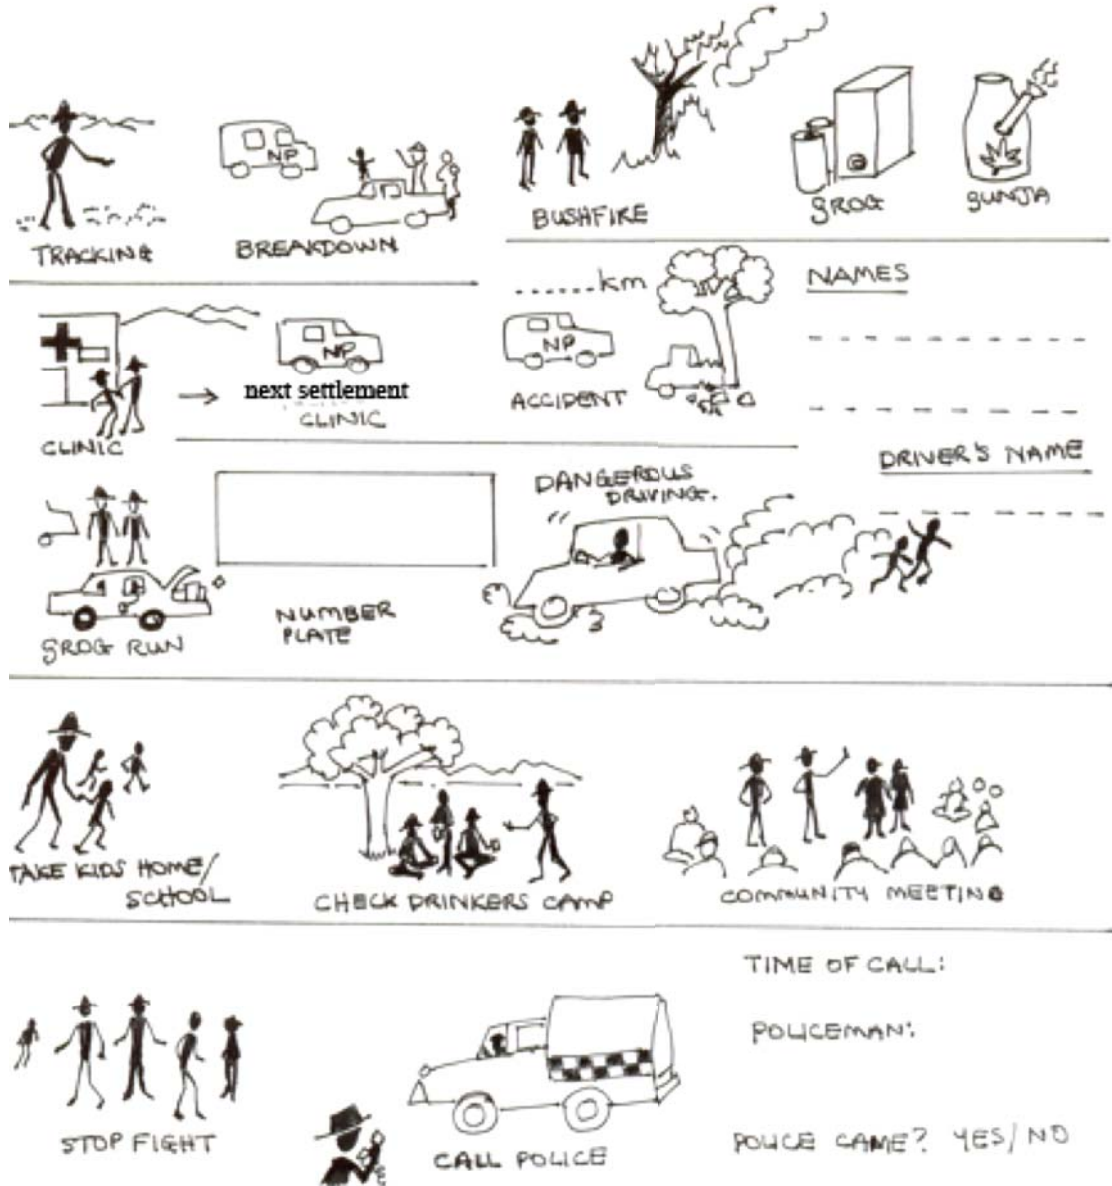 NP
TRACKING
BREAKDOWN
BUSHFIRE
GROG
GUNJA
NP
next settlement
CLINIC
CLINIC
......km
NP
ACCIDENT
NAMES
DRIVER'S NAME
GROG RUN
NUMBER
PLATE
DANGEROUS
DRIVING.
TAKE KIDS HOME/
SCHOOL
CHECK DRINKERS CAMP
COMMUNITY MEETING
STOP FIGHT
CALL POLICE
TIME OF CALL:
POLICEMAN:
POLICE CAME? YES/NO